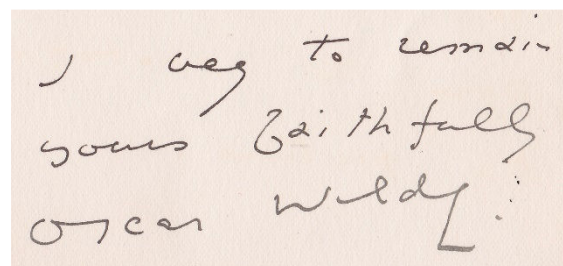 I beg to remain
yours faithfully
Oscar Wilde